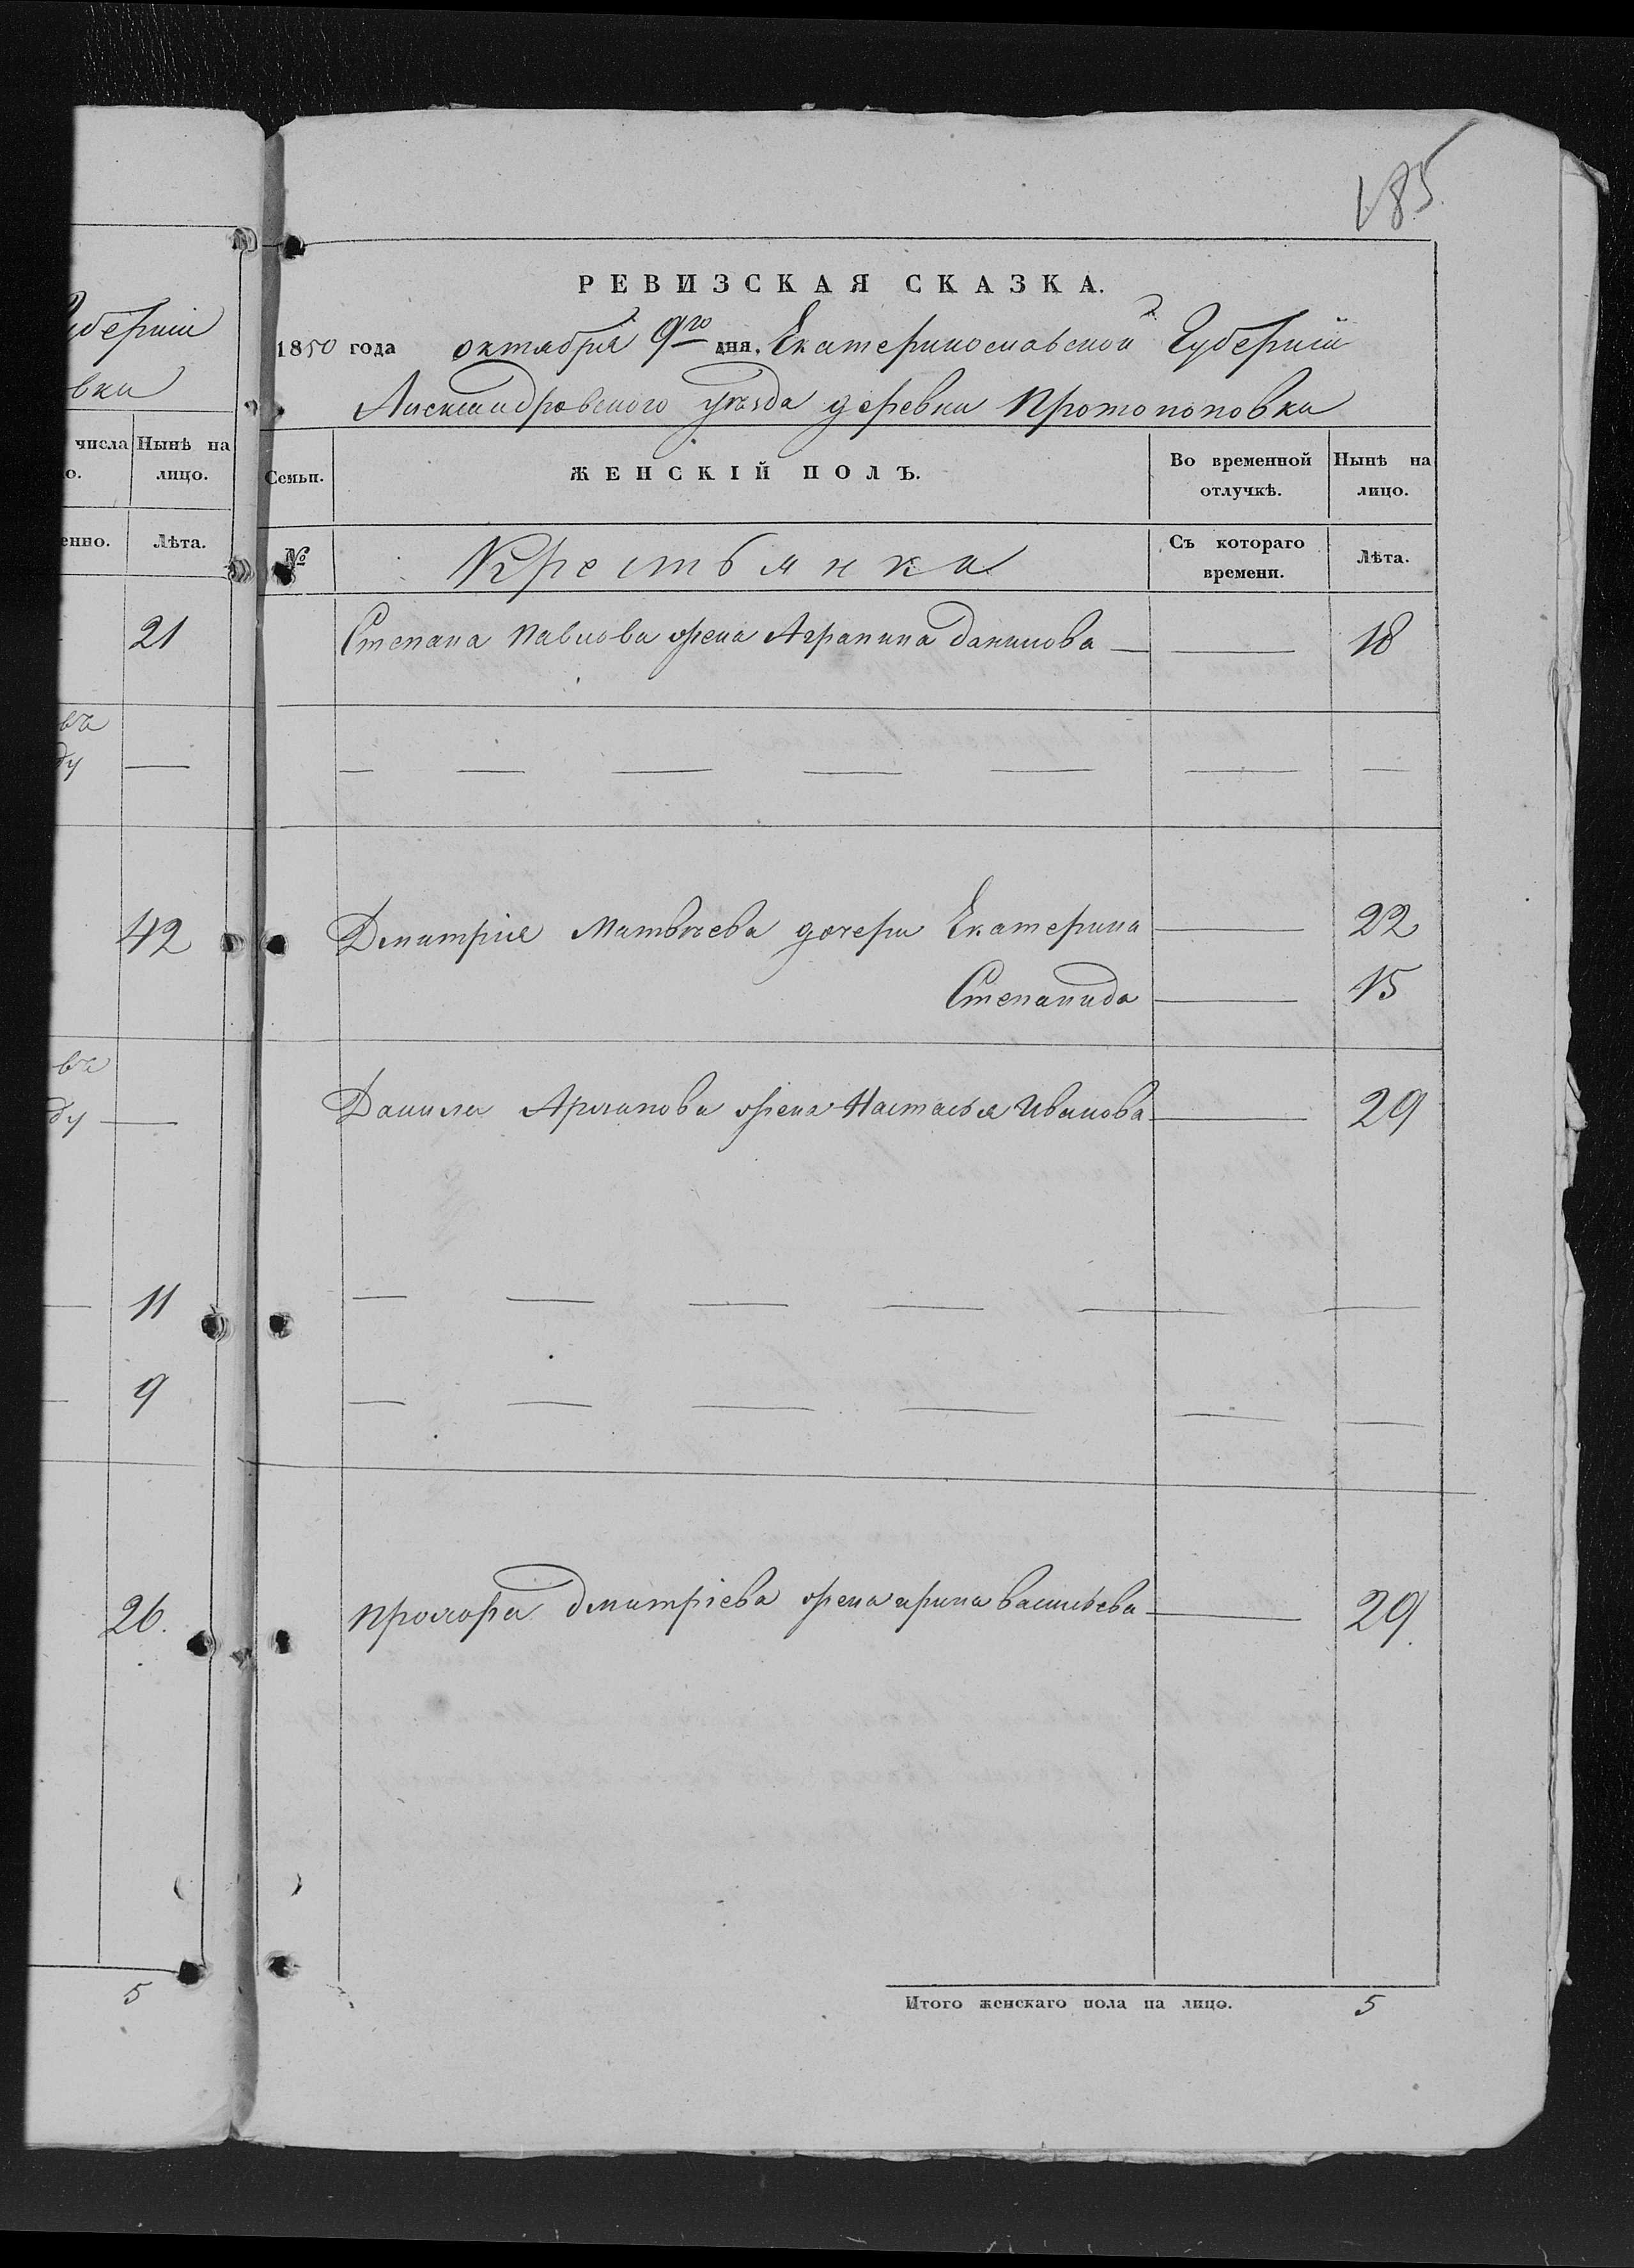 185.
РЕВИЗСКАЯ СКАЗКА.
1850 года октября 9го дня. Екатеринославской Губернии
Александровского уезда деревни Протопоповки
Семьи.
ЖЕНСКІЙ ПОЛЪ.
Во временной отлучкѣ.
Нынѣ на лицо.
№
Крестьянки
Съ котораго времени.
Лѣта.
Степана Павлова жена Аграпина Данилова — — 18
— — — — — — —
Дмитрия Матвѣева дочери Екатерина — 22
Степанида — 15
Данилы жена Настасья Иванова — 29
— — — — — —
— — — — — —
Прохора Дмитріева жена ирина васильева — 29.
Итого женскаго пола на лицо. 5
губернии
вки
числа
Нынѣ на
о.
лицо.
енно.
Лѣта.
21
въ
ду —
42
въ
ду —
— 11
— 9
26.
5